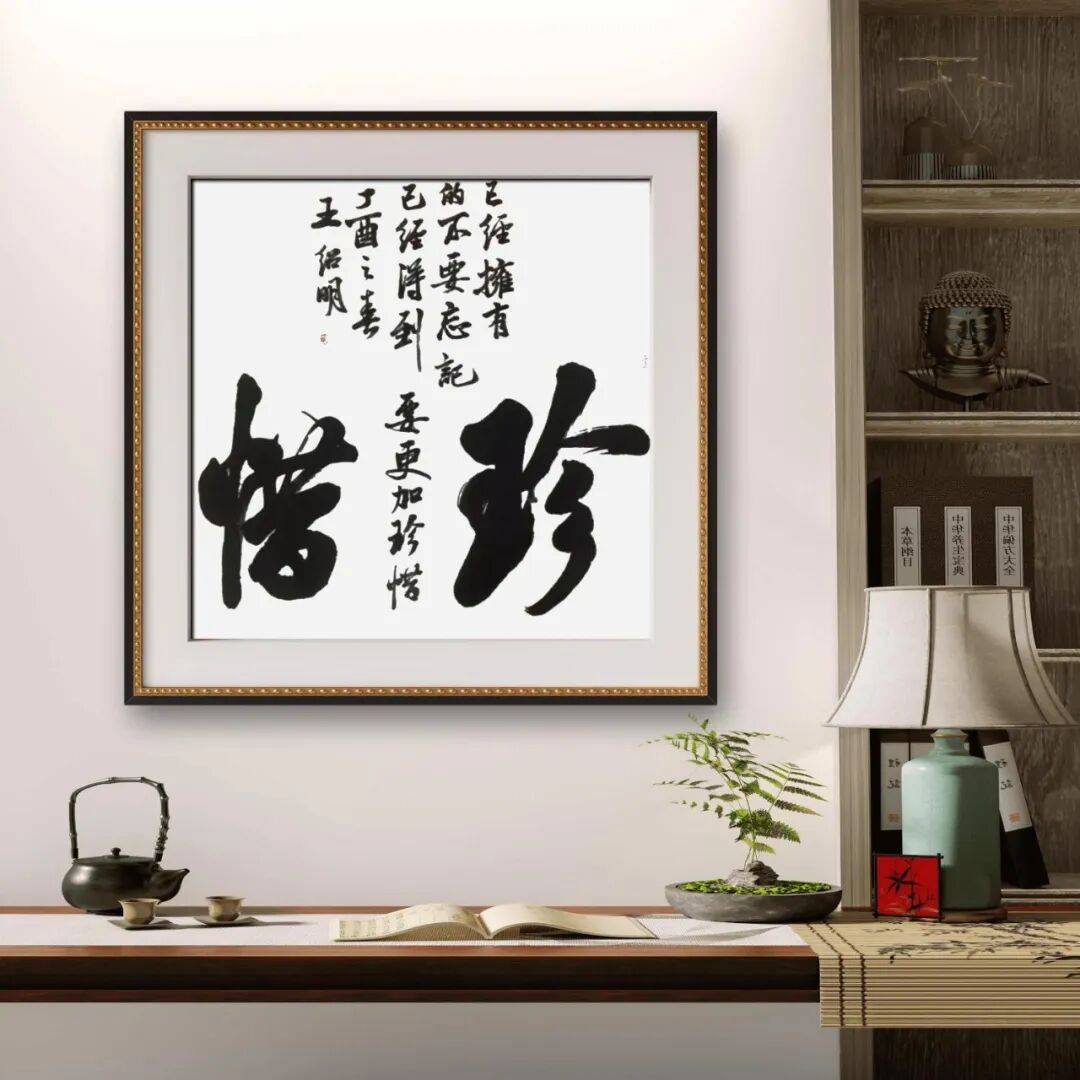 珍惜
已經擁有
的不要忘記
已經得到
要更加珍惜
丁酉之春
王紹明
本草纲目
中华养生宝典
中华偏方大全